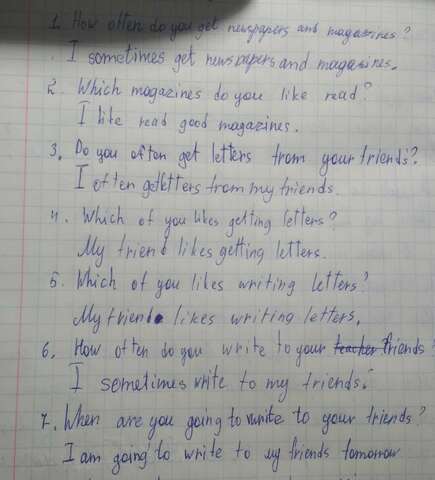 1. How often do you get newspapers and magazines?
I sometimes get newspapers and magazines.
2. Which magazines do you like read?
I like read good magazines.
3. Do you often get letters from your friends?
I often getletters from my friends.
4. Which of you likes getting letters?
My friend likes getting letters.
5. Which of you likes writing letters?
My friend likes writing letters.
6. How often do you write to your teacher friends?
I sometimes write to my friends.
7. When are you going to write to your friends?
I am going to write to my friends tomorrow